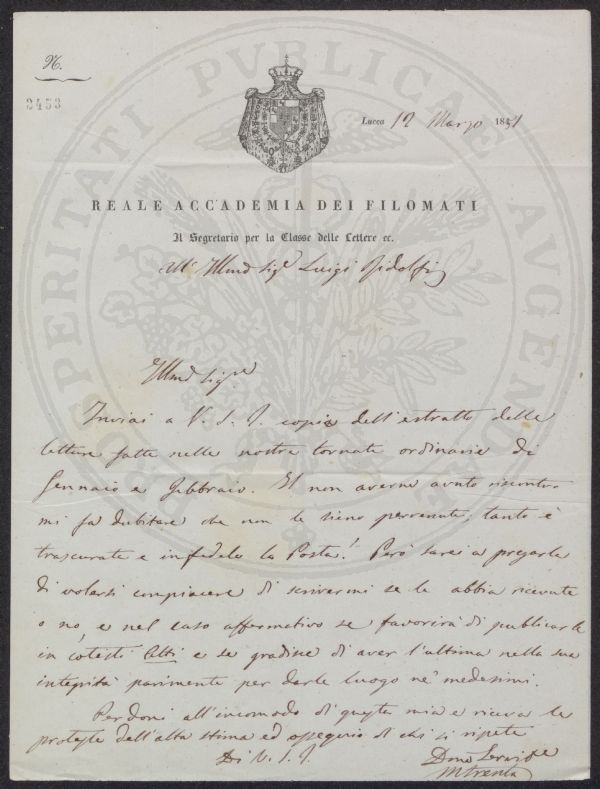 N.
2453
Lucca 12 Marzo 1851
REALE ACCADEMIA DEI FILOMATI
Il Segretario per la Classe delle Lettere ec.
Illmo Sigr Luigi Ridolfi
Illmo Sigre
Inviai a V. S. I. copia dell'estratto delle
letture fatte nelle nostre tornate ordinarie di
Gennaio e Febbraio. Il non averne avuto riscontro
mi fa dubitare che non le sieno pervenute, tanto è
trascurata e infedele la Posta! Però sarei a pregarla
di volersi compiacere di scrivermi se le abbia ricevute
o no, e nel caso affermativo se favorirà di pubblicarle
in cotesti Atti e se gradisce di aver l'ultima nella sua
integrità parimente per darle luogo ne' medesimi.
Perdoni all'incomodo di questa mia e riceva le
proteste dell'alta stima ed ossequio di chi si ripete
Di V. S. I.
Dmo Servire
M Trenta
PROSPERITATI PVBLICAE AVGENDAE